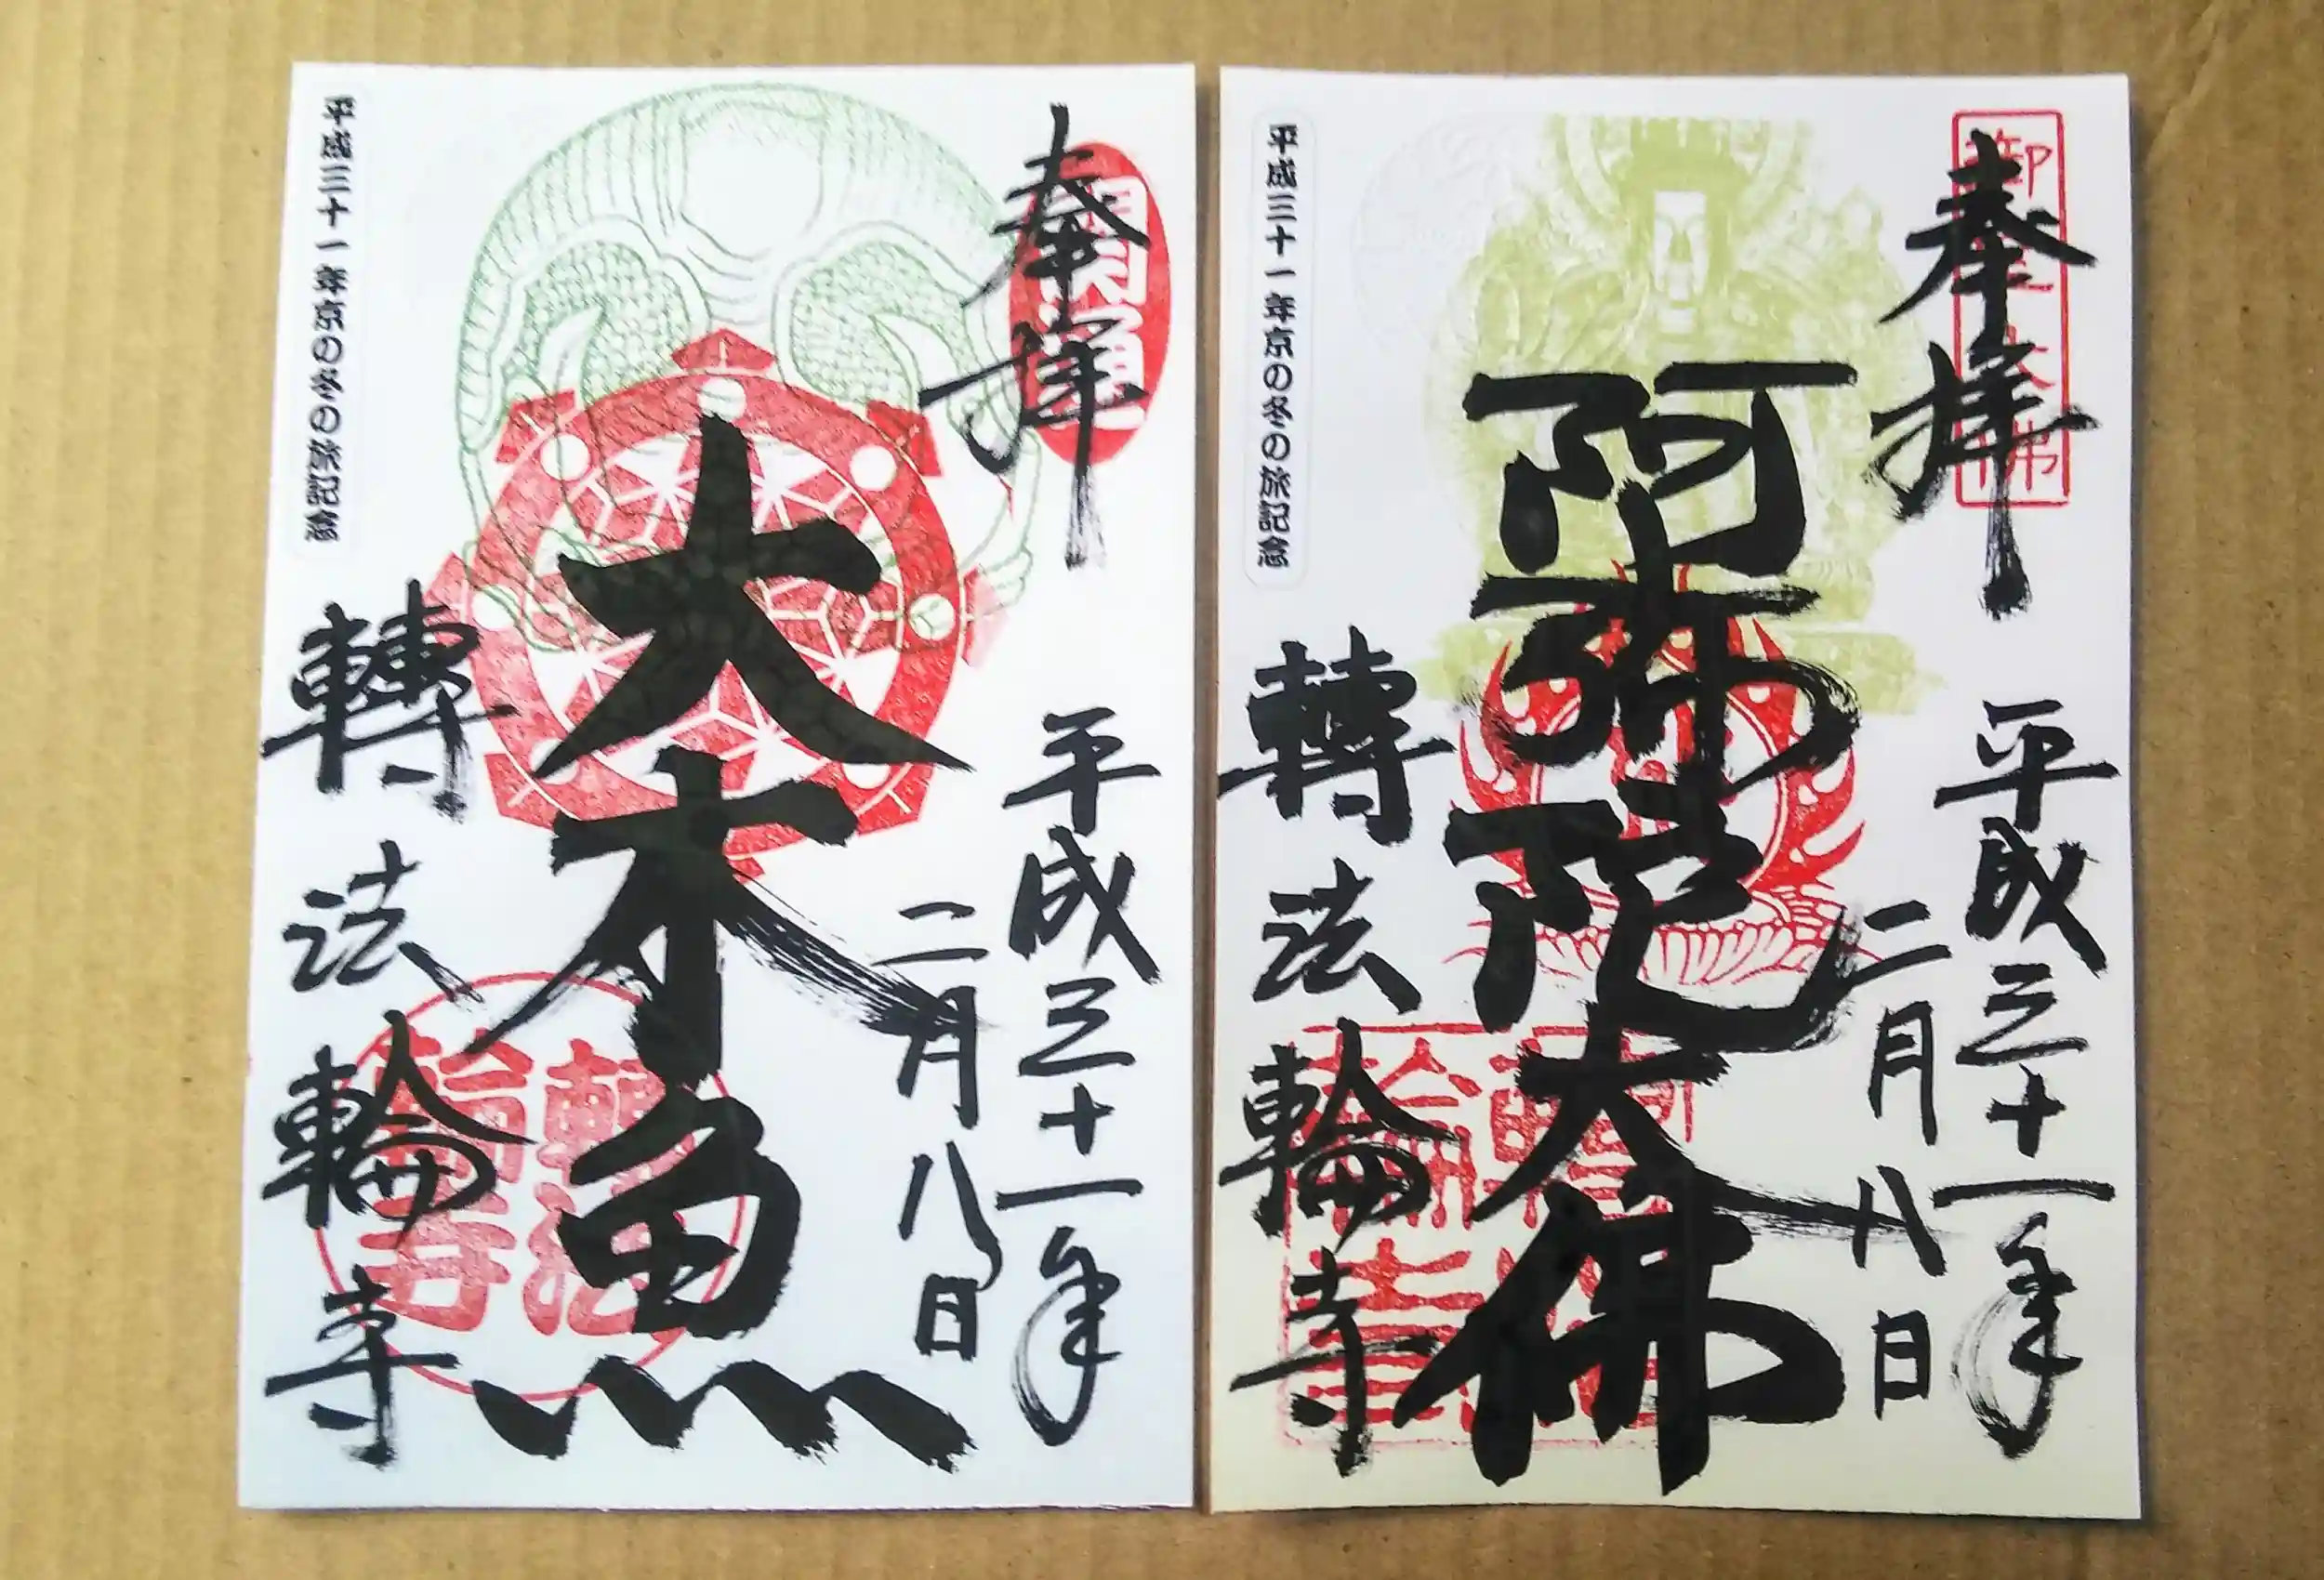 奉拝
開通
平成三十一年
二月八日
大木魚
平成三十一年京の冬の旅記念
轉法輪寺
轉法輪寺
奉拝
平成三十一年
二月八日
阿弥陀大佛
平成三十一年京の冬の旅記念
轉法輪寺
轉法輪寺